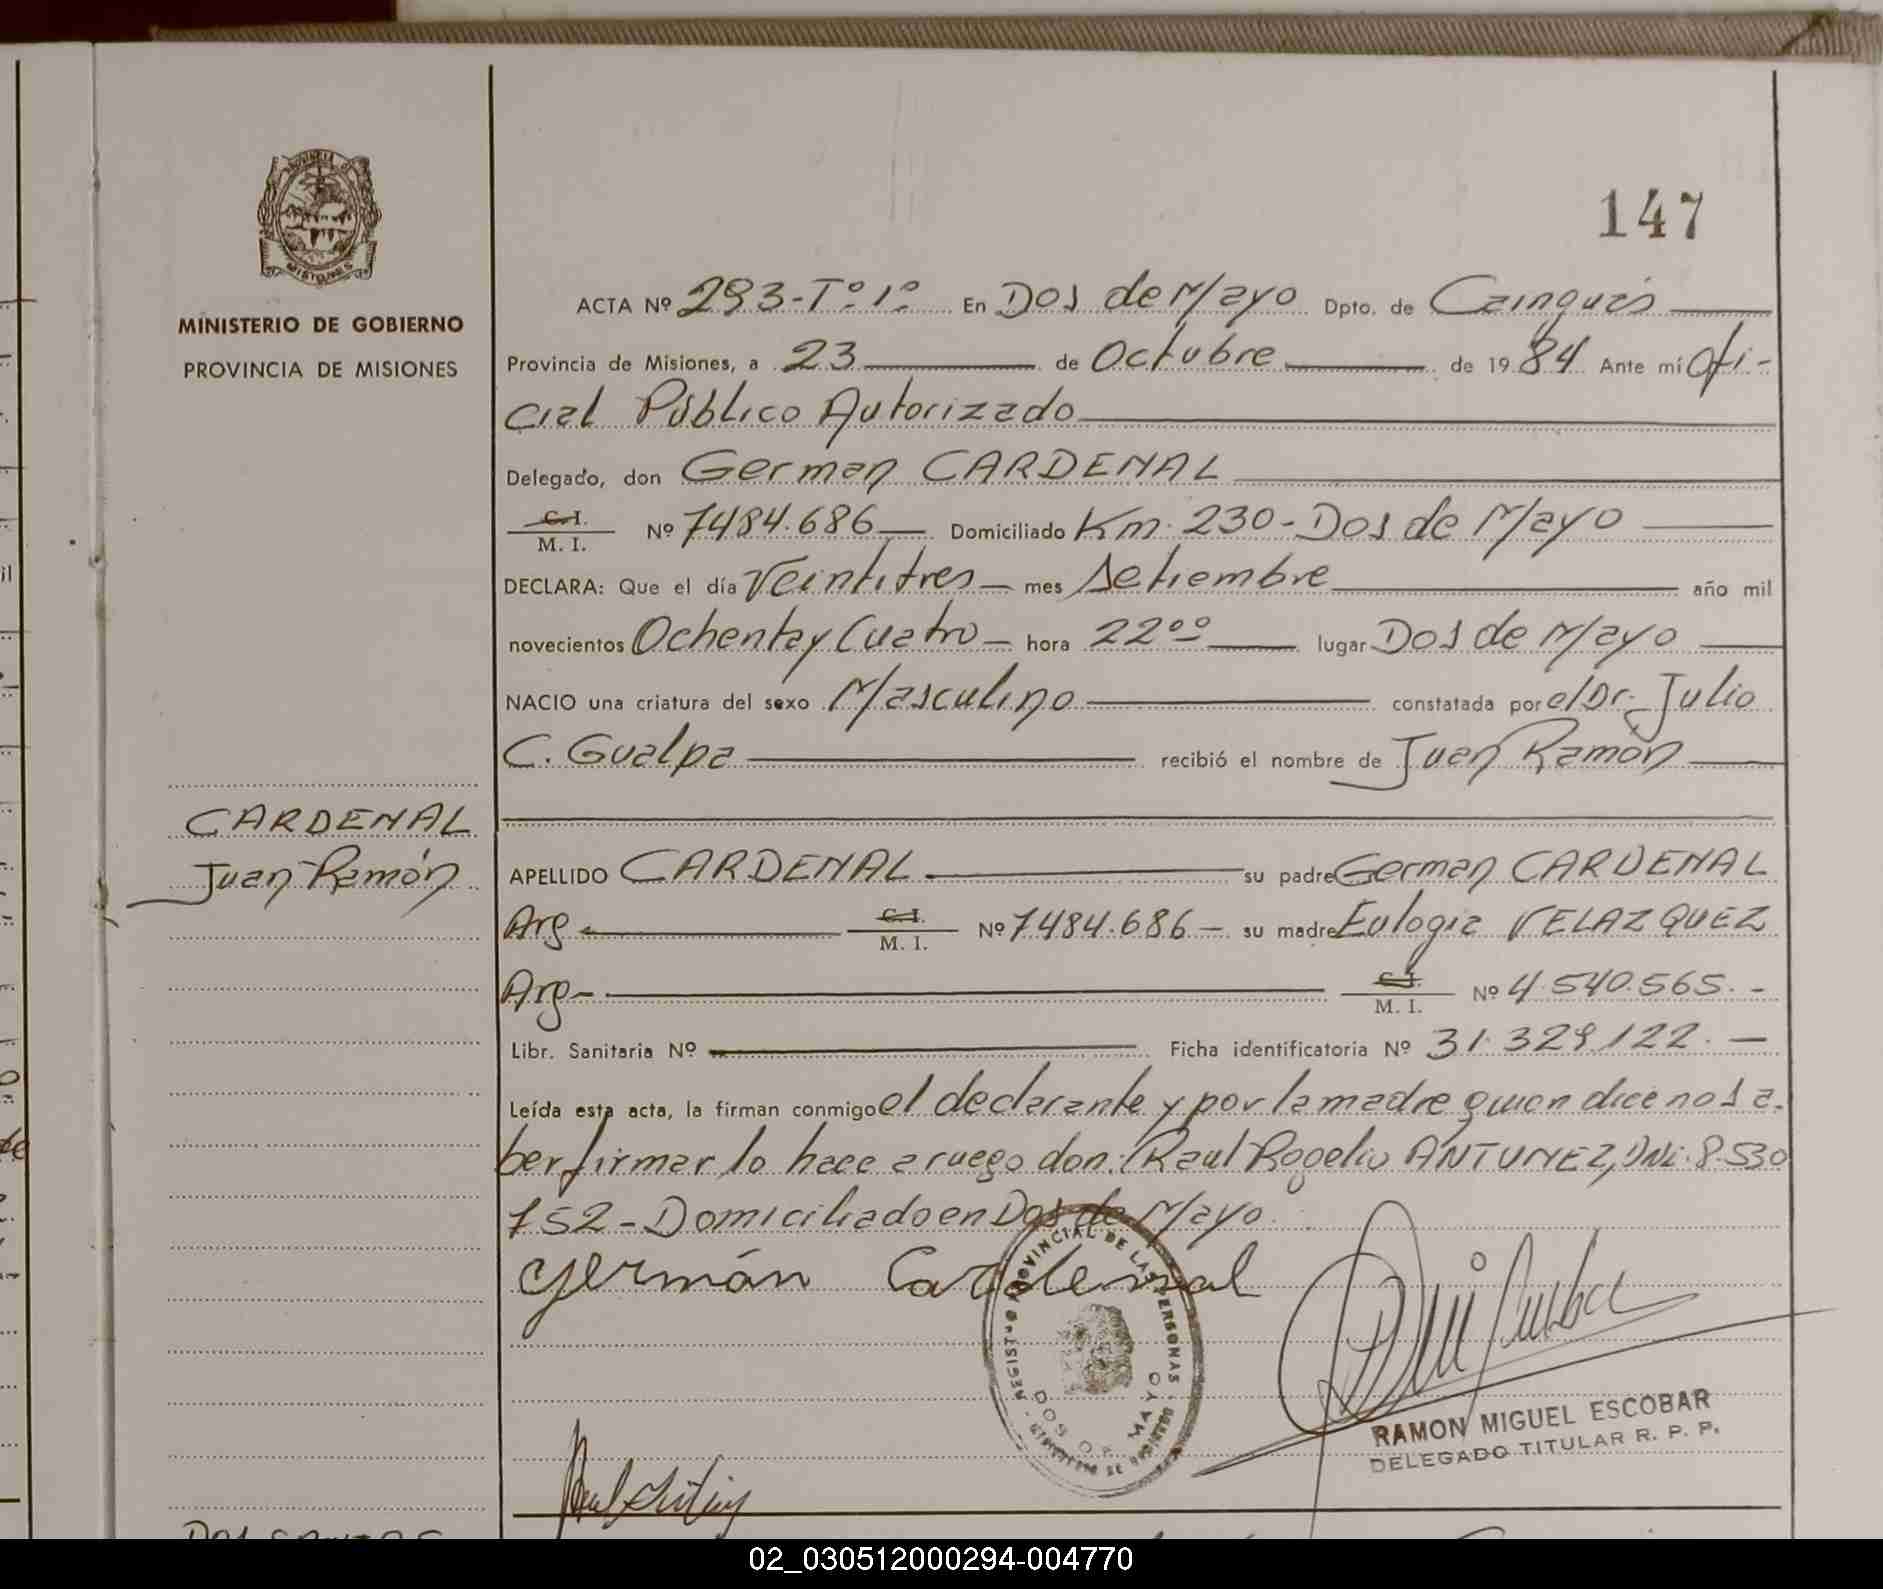 147
PROVINCIA DE
MISIONES
MINISTERIO DE GOBIERNO
PROVINCIA DE MISIONES
ACTA Nº 293-Tº-1º En Dos de Mayo Dpto. de Cainguás
Provincia de Misiones, a 23 de Octubre de 1984 Ante mí Ofi-
cial Público Autorizado
Delegado, don German CARDENAL
C.I.
M. I. Nº 7484.686 Domiciliado Km. 230-Dos de Mayo
DECLARA: Que el día Veintitres mes Setiembre año mil
novecientos Ochentay Cuatro hora 22ºº lugar Dos de Mayo
NACIO una criatura del sexo Masculino constatada por el Dr. Julio
C. Gualpa recibió el nombre de Juan Ramón
CARDENAL
Juan Ramón
APELLIDO CARDENAL su padre German CARDENAL
Arg C.I.
M. I. Nº 7484.686 su madre Eulogia VELAZQUEZ
Arg- C.I.
M. I. Nº 4.540.565.-
Libr. Sanitaria Nº Ficha identificatoria Nº 31.329.122.
Leída esta acta, la firman conmigo el declarante y por la madre quien dice no sa-
ber firmar lo hace a ruego don: Raul Rogelio ANTUNEZ, DNI. 8.530
752-Domiciliado en Dos de Mayo.
Germán Cardenal
REGISTRO PROVINCIAL DE LAS PERSONAS
DOS DE MAYO
MINISTERIO DE GOBIERNO
RAMON MIGUEL ESCOBAR
DELEGADO TITULAR R. P. P.
02_030512000294-004770